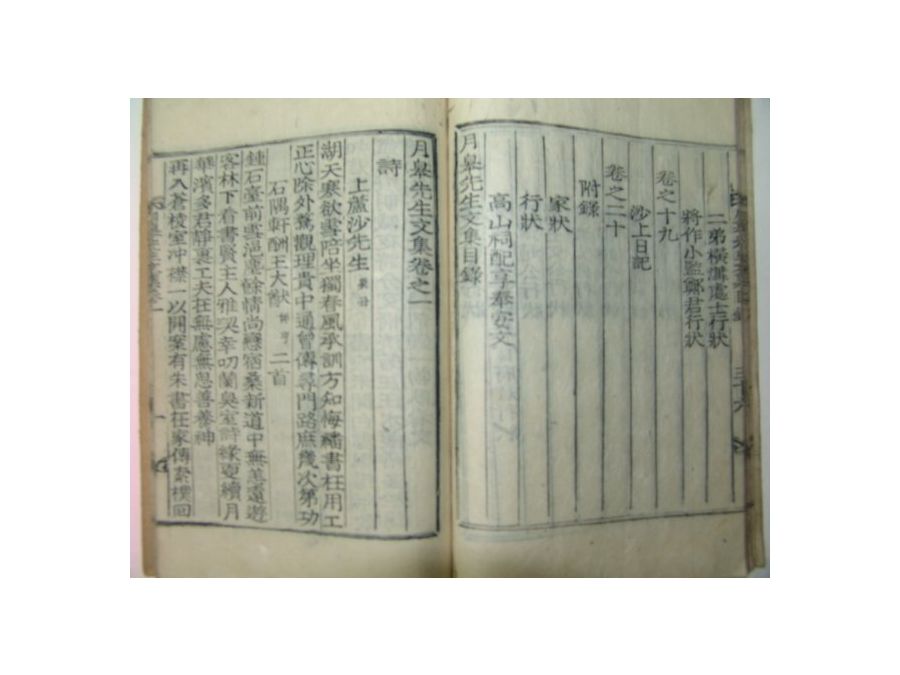 二弟橫溝處士行狀
將作小監鄭君行狀
卷之十九
沙上日記
卷之二十
附錄
家狀
行狀
高山祠配享奉安文
月皐先生文集目錄
月皐先生文集卷之一
詩
上蘆沙先生
湖天寒欲雪陪坐獨春風承訓方知悔繙書枉用工
正心除外騖觀理貴中通曾傳尋門路庶幾次第功
石隅軒酬王大猷 二首
鍾石臺前雲滿塵餘情尚戀宿桑新道中無並還遊
客林下看書賢主人雅契幸叨蘭臭室詩緣更續月
華濱多君靜裏工夫在無慮無思善養神
再入蒼稜室冲襟一以開案有朱書在家傳素樸回